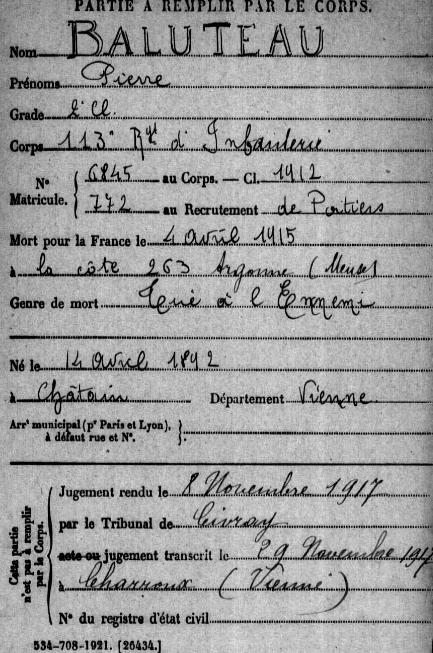 PARTIE À REMPLIR PAR LE CORPS.
Nom BALUTEAU
Prénoms Pierre
Grade 2e Cl.
Corps 113e Rgt d'Infanterie
N° Matricule. { 6845 au Corps. — Cl. 1912
772 au Recrutement de Poitiers
Mort pour la France le 4 Avril 1915
à la côte 263 Argonne (Meuse)
Genre de mort Tué à l'Ennemi
Né le 14 Avril 1892
à Châtain Département Vienne
Arrt municipal (pr Paris et Lyon), à défaut rue et N°. }
Cette partie n'est pas à remplir par le Corps. {
Jugement rendu le 8 Novembre 1917
par le Tribunal de Civray
acte ou jugement transcrit le 29 Novembre 1917
à Charroux (Vienne)
N° du registre d'état civil
534-708-1921. [26434.]